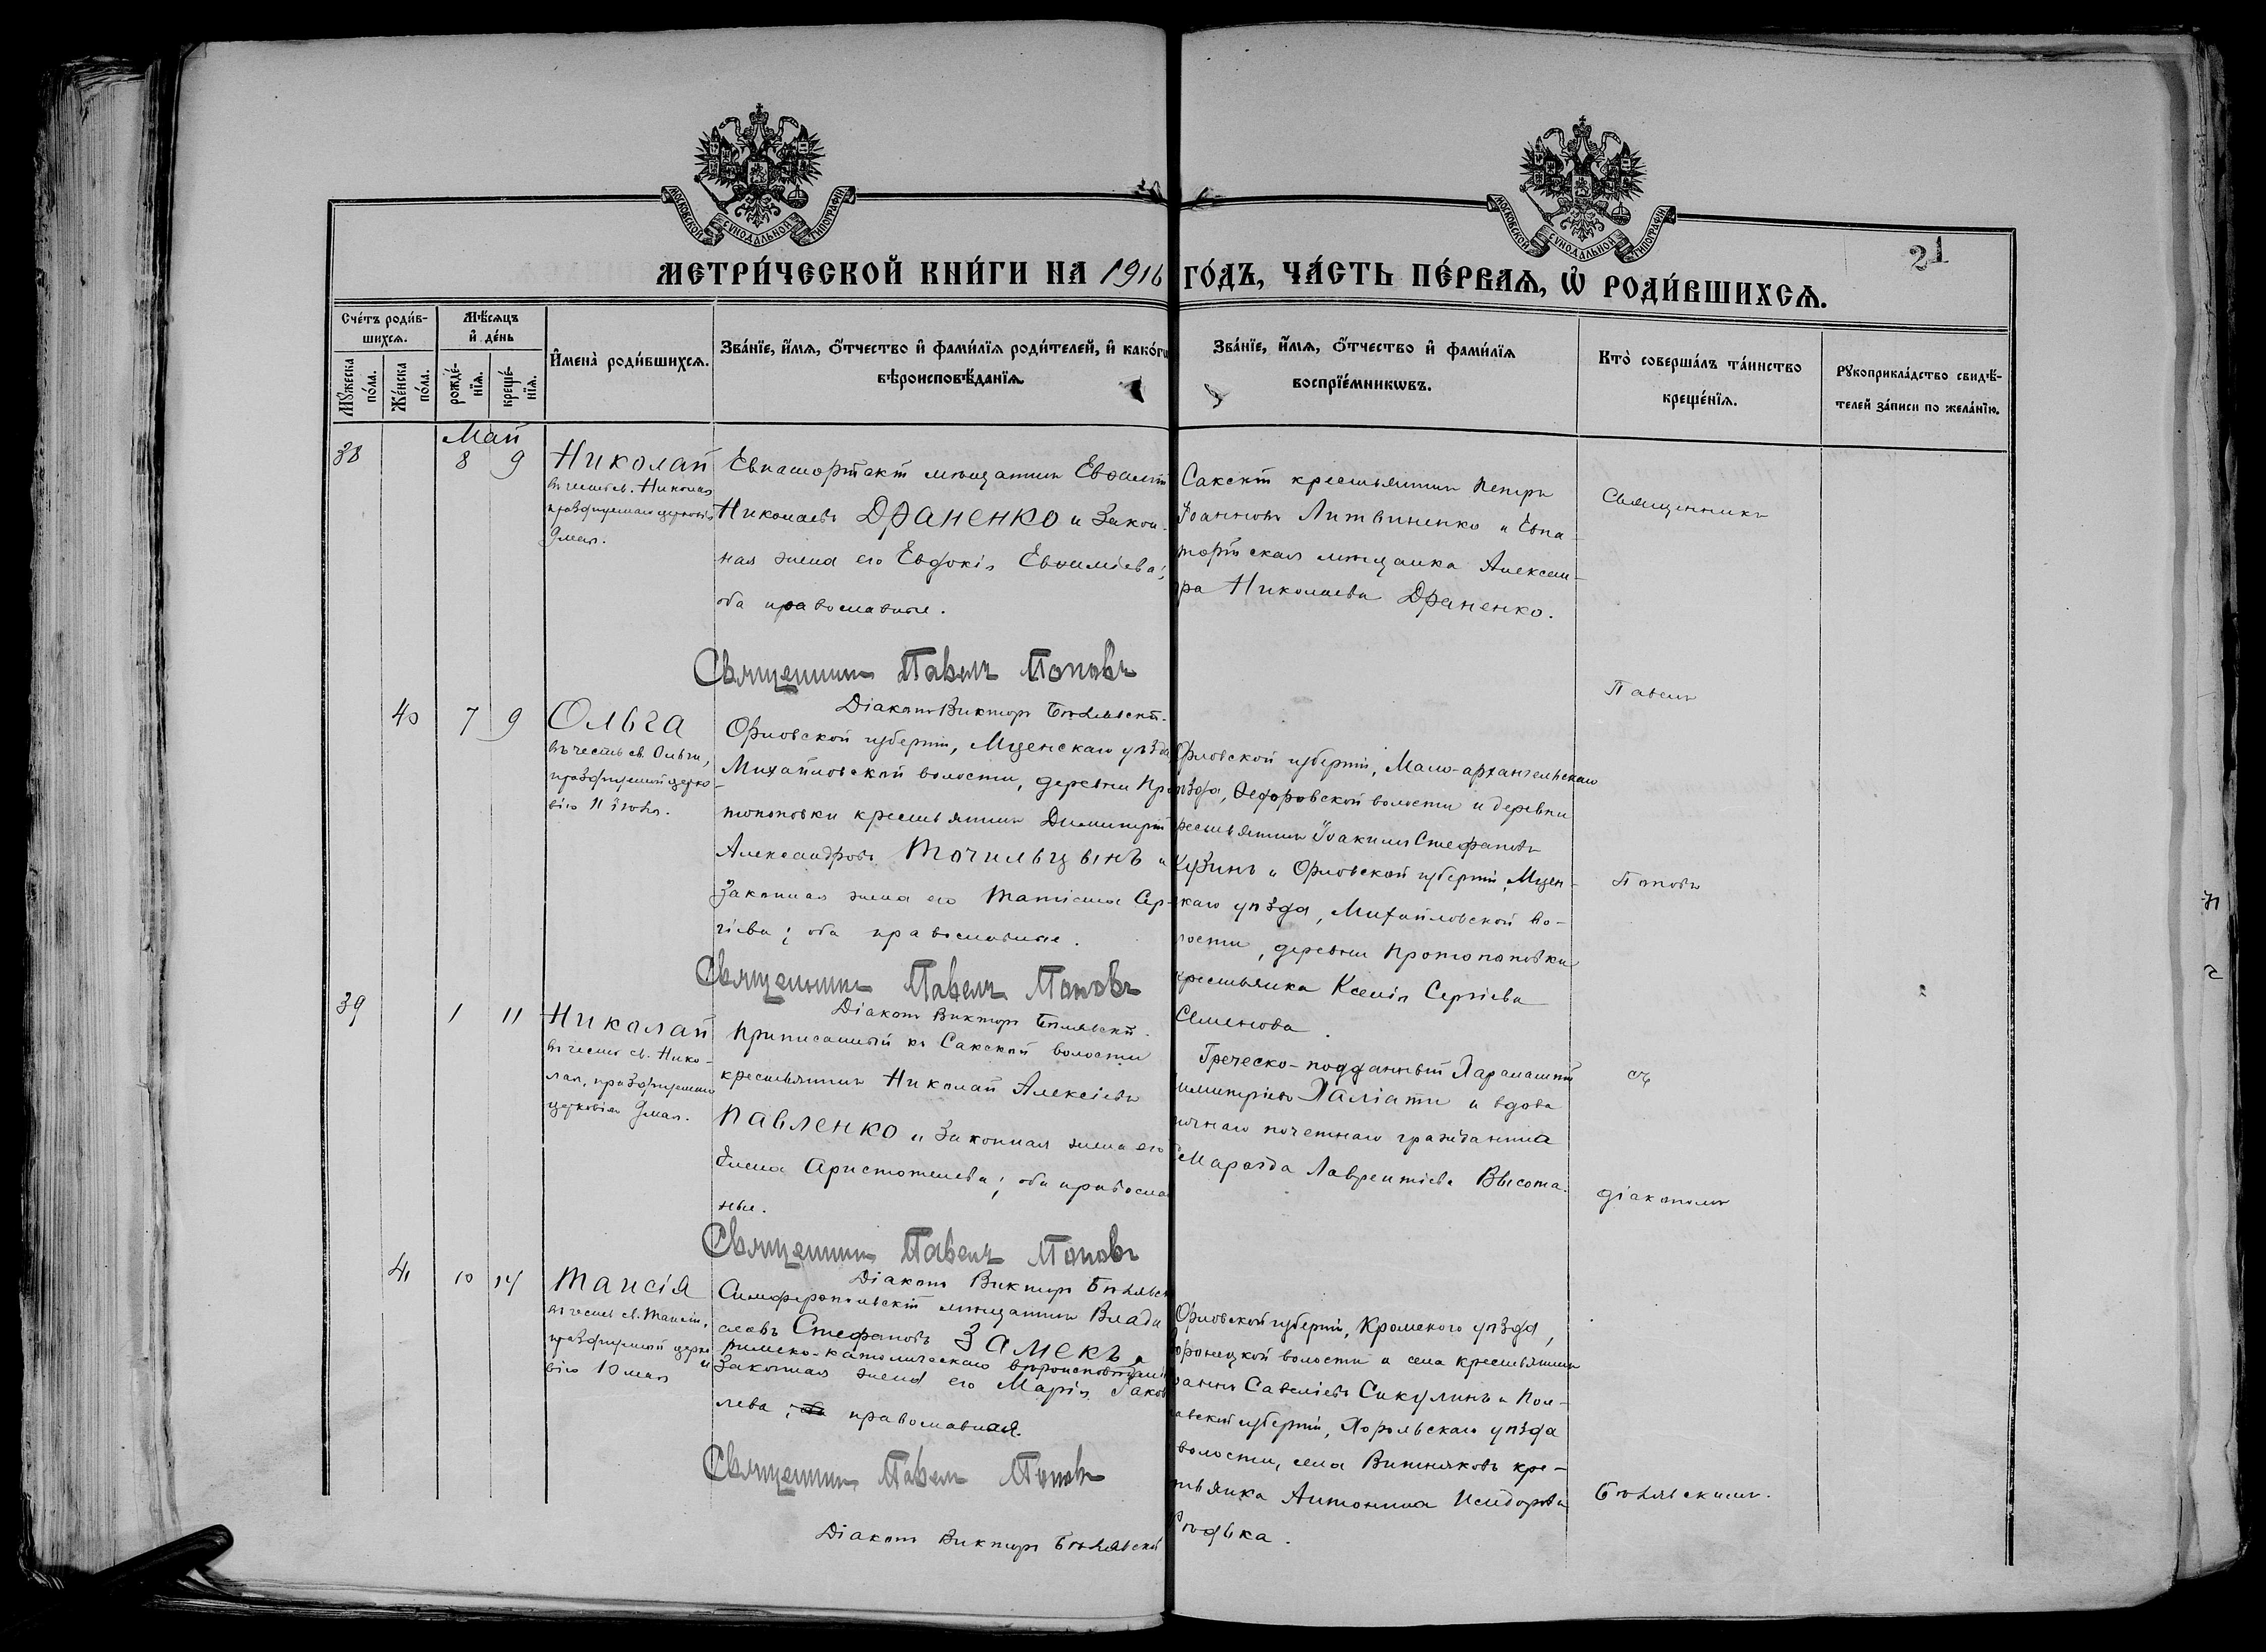 МОСКОВСКОЙ СѴНОДАЛЬНОЙ ТИПОГРАФІИ
МОСКОВСКОЙ СѴНОДАЛЬНОЙ ТИПОГРАФІИ
21
МЕТРИ́ЧЕСКОЙ КНИ́ГИ НА 1916 ГО́ДЪ, ЧА́СТЬ ПЕ́РВАѦ, Ѡ҆ РОДИ́ВШИХСѦ.
Сче́тъ роди́в-
шихсѧ.
Мꙋжеска по́ла.
Же́нска по́ла.
Мѣ́сѧцъ и҆ де́нь
рожде́-
нїѧ.
креще́-
нїѧ.
И҆мена̀ роди́вшихсѧ.
Зва́нїе, и҆́мѧ, ѻ҆́тчество и҆ фами́лїѧ роди́телей, и҆ како́гѡ
вѣроисповѣ́данїѧ.
Зва́нїе, и҆́мѧ, ѻ҆́тчество и҆ фами́лїѧ
воспрїе́мникѡвъ.
Кто̀ соверша́лъ та́инство
креще́нїѧ.
Рꙋкоприкла́дство свидѣ́-
телей за́писи по жела́нїю.
Май
38
8 9
Николай
въ честь св. Николая
празднуемаго церковію
9 мая.
Евпаторійскій мѣщанинъ Евѳимій
Николаевъ Драненко и закон-
ная жена его Евдокія Евѳиміева;
оба православные.
Священникъ Павелъ Поповъ
Діаконъ Викторъ Бѣлявскій.
Сакскій крестьянинъ Петръ
Іоанновъ Литвиненко и Евпа-
торійская мѣщанка Алексан-
дра Николаева Драненко.
40
7 9
Ольга
въ честь св. Ольги,
празднуемой церко-
вію 11 іюля.
Орловской губерніи, Мценскаго уѣзда
Михайловской волости, деревни Про-
топоповки крестьянинъ Димитрій
Александровъ Точильцынъ и
законная жена его Татіана Сер-
гіева; оба православные.
Священникъ Павелъ Поповъ
Діаконъ Викторъ Бѣлявскій.
Орловской губерніи, Мало-архангельскаго
уѣзда, Ѳедоровской волости и деревни
крестьянинъ Іоакимъ Стефановъ
Кузинъ и Орловской губерніи, Мцен-
скаго уѣзда, Михайловской во-
лости, деревни Протопоповки
крестьянка Ксенія Сергіева
Семенова.
39
1 11
Николай
въ честь св. Нико-
лая, празднуемаго
церковію 9 мая.
Приписанный къ Сакской волости
крестьянинъ Николай Алексіевъ
Павленко и законная жена его
Елена Аристотелева; оба православ
ные.
Священникъ Павелъ Поповъ
Діаконъ Викторъ Бѣлявскій
Греческо-подданный Харалампій
Димитріевъ Халіати и вдова
личнаго почетнаго гражданина
Смарагда Лаврентіева Высота.
41
10 14
Таисія
въ честь св. Таисіи,
празднуемой церко
вію 10 мая
Симферопольскій мѣщанинъ Влади
славъ Стефановъ Замекъ,
римско-католическаго вѣроисповѣданія
и законная жена его Марія Іаков
лева; оба православная.
Священникъ Павелъ Поповъ
Діаконъ Викторъ Бѣлявскій
Орловской губерніи, Кромскаго уѣзда,
волости и села крестьянинъ
Іоаннъ Савеліевъ Сикулинъ и Пол-
тавской губерніи, Хорольскаго уѣзда
волости, села Вишняковъ кре-
стьянка Антонина Исидорова
Рѣдька.
Священникъ
Павелъ
Поповъ
съ
діакономъ
Бѣлявскимъ.